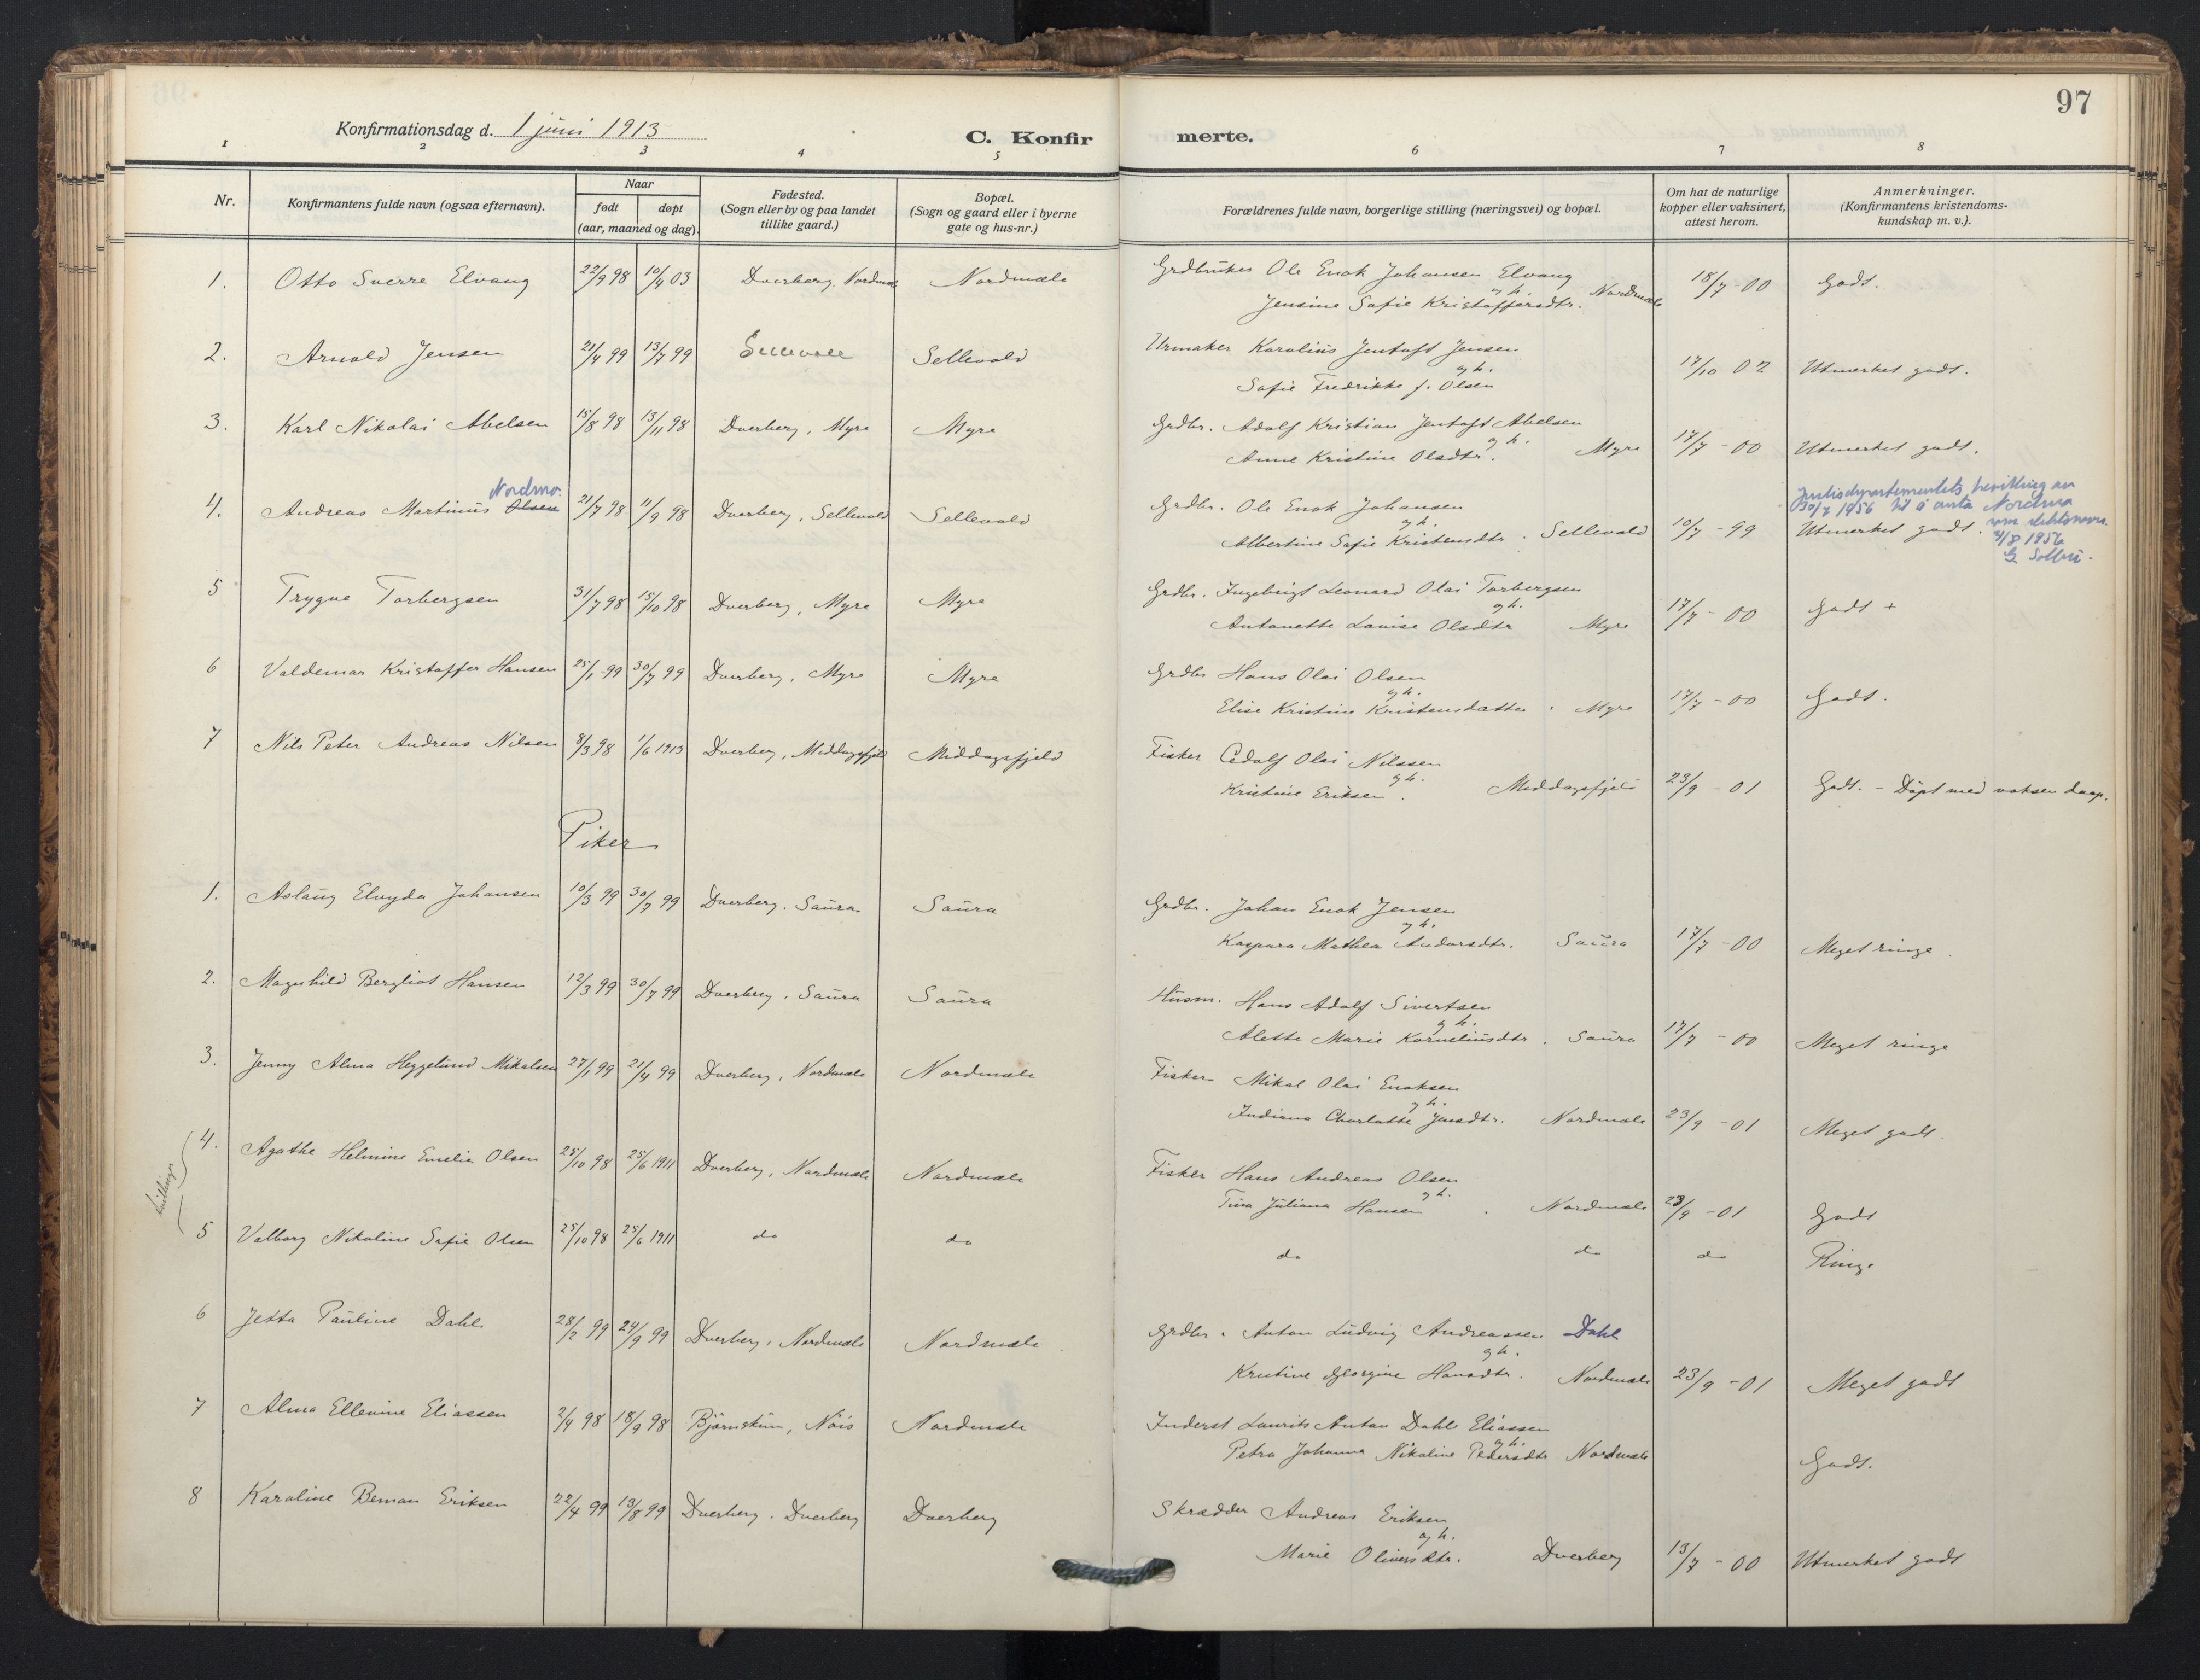 97
Konfirmationsdag d. 1 juni 1913
C. Konfir merte.
1 2 3 4 5 6 7 8
Nr.
Konfirmantens fulde navn (ogsaa efternavn).
Naar
født døpt
(aar, maaned og dag).
Fødested.
(Sogn eller by og paa landet
tillike gaard.)
Bopæl.
(Sogn og gaard eller i byerne
gate og hus-nr.)
Forældrenes fulde navn, borgerlige stilling (næringsvei) og bopæl.
Om hat de naturlige
kopper eller vaksinert,
attest herom.
Anmerkninger.
(Konfirmantens kristendoms-
kundskap m. v.).
1. Otto Sverre Elvang 22/9 98 10/4 03 Dverberg, Nordmæle Nordmæle Grdbruker Ole Enok Johansen Elvang
og h. Jensine Sofie Kristoffersdtr. Nordmæle 18/7-00 Godt.
2. Arnold Jensen 21/4 99 13/7 99 Sellevoll Sellevold Urmaker Karolius Jentoft Jensen
og h. Sofie Fredrikke f. Olsen 17/10 02 Utmerket godt.
3. Karl Nikolai Abelsen 15/8 98 13/11 98 Dverberg, Myre Myre Grdbr. Adolf Kristian Jentoft Abelsen
og h. Anne Kristine Olsdtr. Myre 17/7-00 Utmerket godt.
4. Andreas Martinus Olsen Nordmo. 21/7 98 11/9 98 Dverberg, Sellevold Sellevold Grdbr. Ole Enok Johansen
og h. Albertine Sofie Kristensdtr. Sellevold 10/7-99 Utmerket godt.
Justisdepartementets bevilling av
30/7 1956 til å anta Nordmo
som slektsnavn.
3/8 1956
5 Trygve Torbergsen 31/7 98 15/10 98 Dverberg, Myre Myre Grdbr. Ingebrigt Leonard Olai Torbergsen
og h. Antonette Lovise Olsdtr Myre 17/7-00 Godt +
6 Valdemar Kristoffer Hansen 25/1-99 30/7 99 Dverberg, Myre Myre Grdbr Hans Olai Olsen
og h. Elise Kristine Kristensdatter. Myre 17/7-00 Godt.
7 Nils Peter Andreas Nilsen 8/3 98 1/6 1913 Dverberg, Middagsfjeld Middagsfjeld Fisker Edolf Olai Nilssen
og h. Kristine Eriksen. Middagsfjeld 23/9-01 Godt. - Døpt med voksen daap.
Piker
1. Aslaug Elvyda Johansen 10/3 99 30/7 99 Dverberg. Saura Saura Grdbr. Johan Enok Jensen
og h. Kaspara Mathea Andorsdtr. Saura 17/7-00 Meget ringe.
2. Magnhild Bergliot Hansen 12/3 99 30/7 99 Dverberg, Saura Saura Husm. Hans Adolf Sivertsen
og h. Alette Marie Korneliusdtr. Saura 17/7-00 Meget ringe
3. Jenny Alma Heggelund Mikalsen 27/1 99 21/4 99 Dverberg, Nordmæle Nordmæle Fisker Mikal Olai Enoksen
og h. Indiana Charlotte Jensdtr. Nordmæle 23/9-01 Meget godt.
tvillinger
4. Agathe Helmine Emelie Olsen 25/10 98 25/6 1911 Dverberg, Nordmæle Nordmæle Fisker Hans Andreas Olsen
og h. Tina Juliana Hansen. Nordmæle 23/9-01 Godt
5 Valborg Nikoline Sofie Olsen 25/10 98 25/6 1911 do do do do do Ringe
6 Jetta Pauline Dahl 28/2 99 24/9 99 Dverberg, Nordmæle Nordmæle Grdbr. Anton Ludvig Andreassen Dahl
og h. Kristine Georgine Hansdtr. Nordmæle 23/9-01 Meget godt
7 Alma Ellevine Eliassen 2/4 98 18/9 98 Bjørnskin, Nöis Nordmæle Inderst Laurits Anton Dahl Eliassen
og h. Petra Johanna Nikoline Pedersdtr Nordmæle Godt.
8 Karoline Beman Eriksen 22/4 99 13/8 99 Dverberg. Dverberg Dverberg Skrædder Andreas Eriksen
og h. Marie Oliversdtr. Dverberg 13/7-00 Utmerket godt